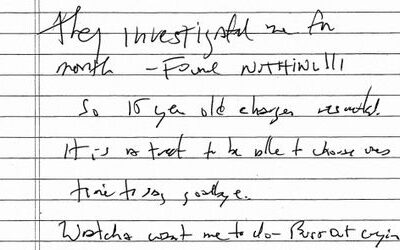 They investigated me for
month - Found NOTHING!!!
So year old charges resulted.
It is a treat to be able to choose ones
time to say goodbye.
Watcha want me to do - Burst out cryin